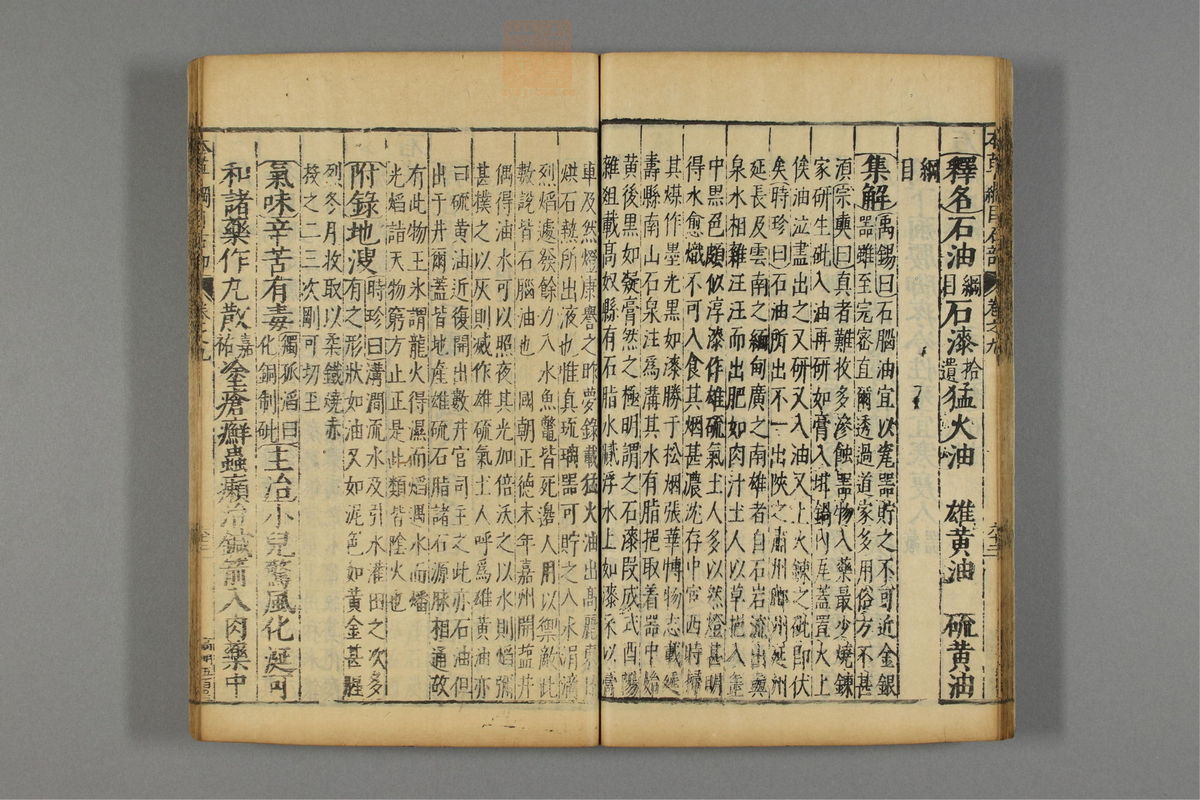 本草綱目石部 卷之九
釋名石油綱目石漆拾遺猛火油 雄黃油 硫黃油
綱目
集解禹錫曰石腦油宜以瓷器貯之不可近金銀
器雖至完密直爾透過道家多用俗方不甚
須宗奭曰真者難收多滲蝕器物入藥最少燒鍊
家研生砒入油再研如膏入坩鍋內瓦蓋置火上
俟油泣盡出之又研又入油又上火鍊之砒即伏
矣時珍曰石油所出不一出陝之肅州鄜州延州
延長及雲南之緬甸廣之南雄者自石岩流出與
泉水相雜汪汪而出肥如肉汁土人以草挹入缶
中黑色頗似淳漆作雄硫氣土人多以然燈甚明
得水愈熾不可入食其烟甚濃沈存中宦西時掃
其煤作墨光黑如漆勝于松烟張華博物志載延
壽縣南山石泉注爲溝其水有脂挹取着器中始
黃後黑如凝膏然之極明謂之石漆段成式酉陽
雜俎載高奴縣有石脂水膩浮水上如漆采以膏
車及然燈康譽之昨夢錄載猛火油出高麗
烘石熱所出液也惟真琉璃器可貯之入水涓滴
烈焰遽發餘力入水魚鼈皆死邊人用以禦敵此
數說皆石腦油也 國朝正德末年嘉州開鹽井
偶得油水可以照夜其光加倍沃之以水則焰彌
甚撲之以灰則滅作雄硫氣土人呼爲雄黃油亦
曰硫黃油近復開出數井官司主之此亦石油但
出于井爾蓋皆地產雄硫石脂諸石源脉相通故
有此物王冰謂龍火得濕而焰遇水而燔
光焰詣天物窮方止正是此類皆陰火也
附錄地溲時珍曰溝澗流水及引水灌田之次多
有之形狀如油又如泥色如黃金甚腥
烈冬月收取以柔鐵燒赤
投之二三次剛可切玉
氣味辛苦有毒獨孤滔曰化銅制砒主治小兒驚風化涎可
和諸藥作丸散嘉祐塗瘡癬蟲癩治鍼箭入肉藥中
本草綱目石部 卷之九